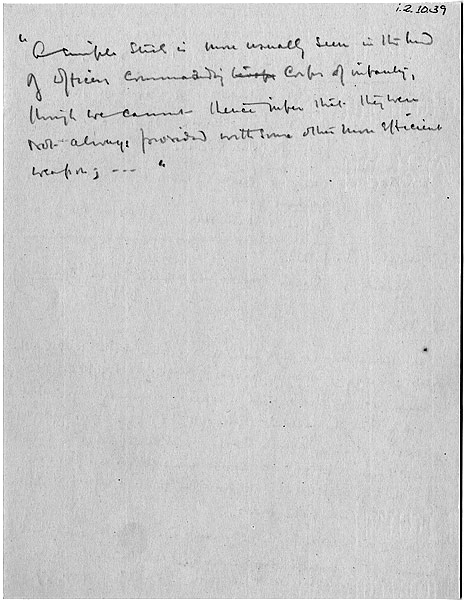 i.2.10.39
"A simple stick is more usually seen in the hand
of officers commanding troops Corps of infantry,
though we cannot thence infer that they were
not always provided with some other more efficient
weapon; --- "